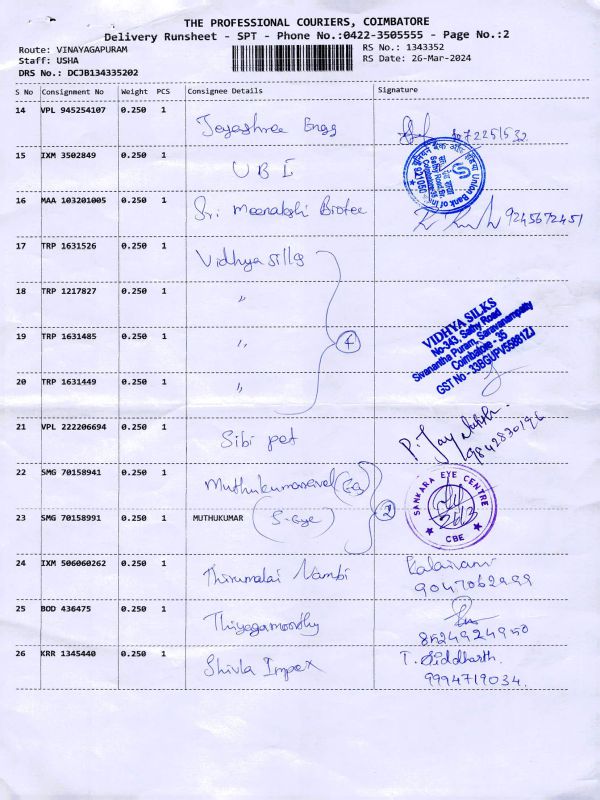 THE PROFESSIONAL COURIERS, COIMBATORE
Delivery Runsheet - SPT - Phone No.:0422-3505555 - Page No.:2
Route: VINAYAGAPURAM
RS No.: 1343352
Staff: USHA
RS Date: 26-Mar-2024
DRS No.: DCJB134335202
S No Consignment No Weight PCS Consignee Details Signature
14 VPL 945254107 0.250 1 Jeyashree Engg
15 IXM 3502849 0.250 1 U B I
Union Bank of India
16 MAA 103201005 0.250 1 Sri meenakshi Biotec 9245672451
17 TRP 1631526 0.250 1 Vidhya sills
18 TRP 1217827 0.250 1 "
19 TRP 1631485 0.250 1 "
4
20 TRP 1631449 0.250 1 "
VIDHYA SILKS
No-343, Sathy Road
Sivanantha Puram, Saravanampatty
Coimbatore - 35
GST No - 33BGUPV55881ZJ
21 VPL 222206694 0.250 1 Sibi pet P. Jay 9842830196
22 SMG 70158941 0.250 1 Muthukumaravel
2
SANKARA EYE CENTRE
CBE
23 SMG 70158991 0.250 1 MUTHUKUMAR S-Eye
24 IXM 506060262 0.250 1 Thirumalai Nambi Kalaivani
9047062999
25 BOD 436475 0.250 1 Thiyagamoorthy
8524924950
26 KRR 1345440 0.250 1 Shivla Impex T. Siddharth
9994719034.